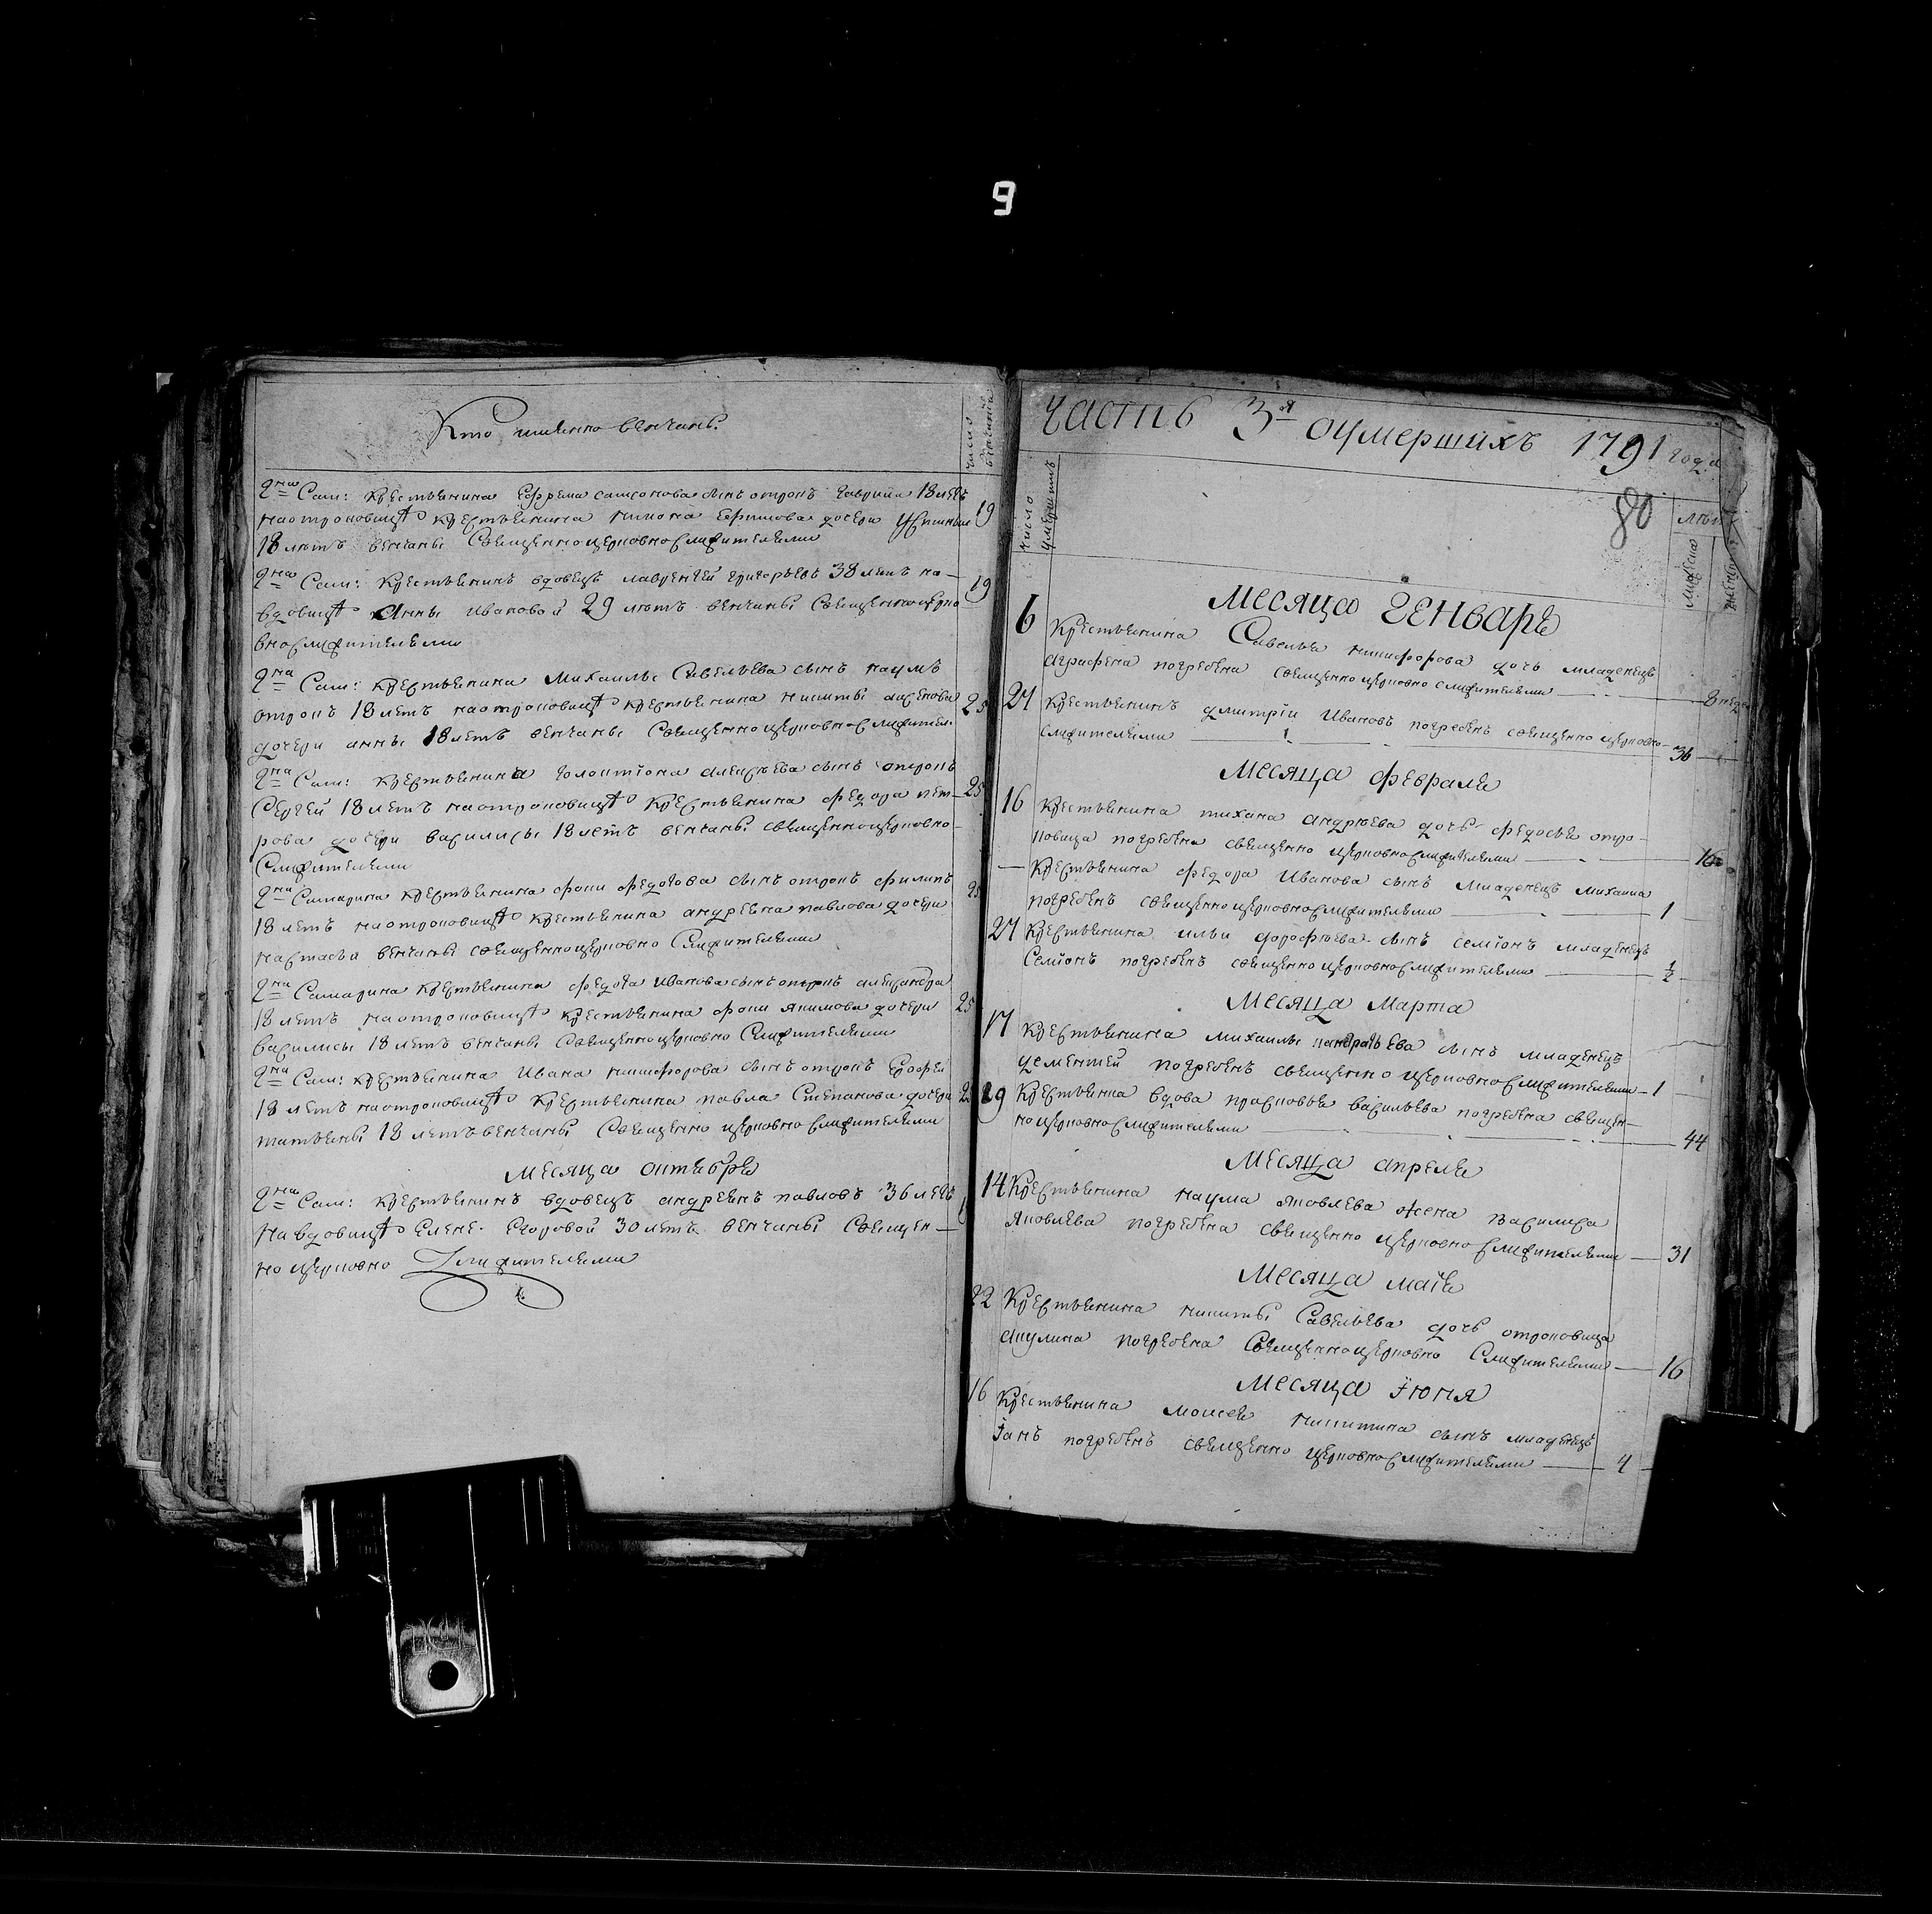 9
Кто имянно венчаны.
число венчания
2на Сам: крестьянина Ефрема самсонова сынъ отрокъ гаврила 18 летъ
на отроковицѣ крестьянина Ефимова дочери Устиньи 19
18 летъ венчаны Священноцерковнослужителями
2на Сам: Крестьянинъ вдовецъ лаврентей григорьевъ 38 летъ на- 19
вдовицѣ Анны Ивановой 29 летъ венчаны Священноцерко
внослужителями
2на Сам: крестьянина Михаилы Савельева сынъ наумъ
отрокъ 18 летъ на отроковицѣ крестьянина никиты 25
дочери анны 18 летъ венчаны Священноцерковнослужител.
2на Сам: крестьянина алексѣева сынъ отрокъ
Сергей 18 летъ на отроковицѣ крестьянина федора пет- 25
рова дочери василисы 18 летъ венчаны священноцерковно-
Служителями
2на Самарина крестьянина фоки федотова сынъ отрокъ филипъ 25
18 летъ на отроковицѣ крестьянина андреяна павлова дочери
настасьи венчаны священноцерковно Служителями
2на Самарина крестьянина федота Иванова сынъ отрокъ александра
18 летъ на отроковицѣ крестьянина фоки якимова дочери 25
василисы 18 летъ венчаны Священноцерковно Служителями
2на Сам: крестьянина Ивана никифорова сынъ отрокъ Ерофей
18 летъ на отроковицѣ крестьянина павла Степанова дочери
татьяны 18 летъ венчаны Священно церковнослужителями
Месяца октября
2на Сам: крестьянинъ вдовецъ андреянъ павловъ 36 летъ
на вдовицѣ Елене Егоровой 30 летъ венчаны Священ-
но церковно Служителями
часть 3я оумершихъ 1791 года
80
число умершихъ
лѣта
мужеска
женска
Месяца Генваря
6 Крестьянина Савелья никифорова дочь младенецъ
аграфена погребена священно церковно служителями 8
27 крестьянинъ дмитрiи Ивановъ погребенъ священно церковно-
служителями 36
Месяца февраля
16 крестьянина тихана андреева дочь федосья отро-
ковица погребена священно церковнослужителями
- крестьянина федора Иванова сынъ младенецъ михаила
погребенъ священноцерковнослужителями 1
27 крестьянина ильи дорофѣева сынъ семiонъ младенецъ
Семiонъ погребенъ священноцерковнослужителями 1/2
Месяца Марта
17 крестьянина михаилы сынъ младенецъ
дементей погребенъ священно церковнослужителями - 1
29 Крестьянка вдова прасковья васильева погребена священ-
но церковнослужителями 44
Месяца апреля
14 Крестьянина наума яковлева жена василиса
яковлева погребена священно церковнослужителями - 31
Месяца маiя
22 Крестьянина никиты Савельева дочь отроковица
акулина погребена Священноцерковно Служителями - 16
Месяца Iюня
16 крестьянина моисея никитина сынъ младенецъ
погребенъ священно церковнослужителями - 4